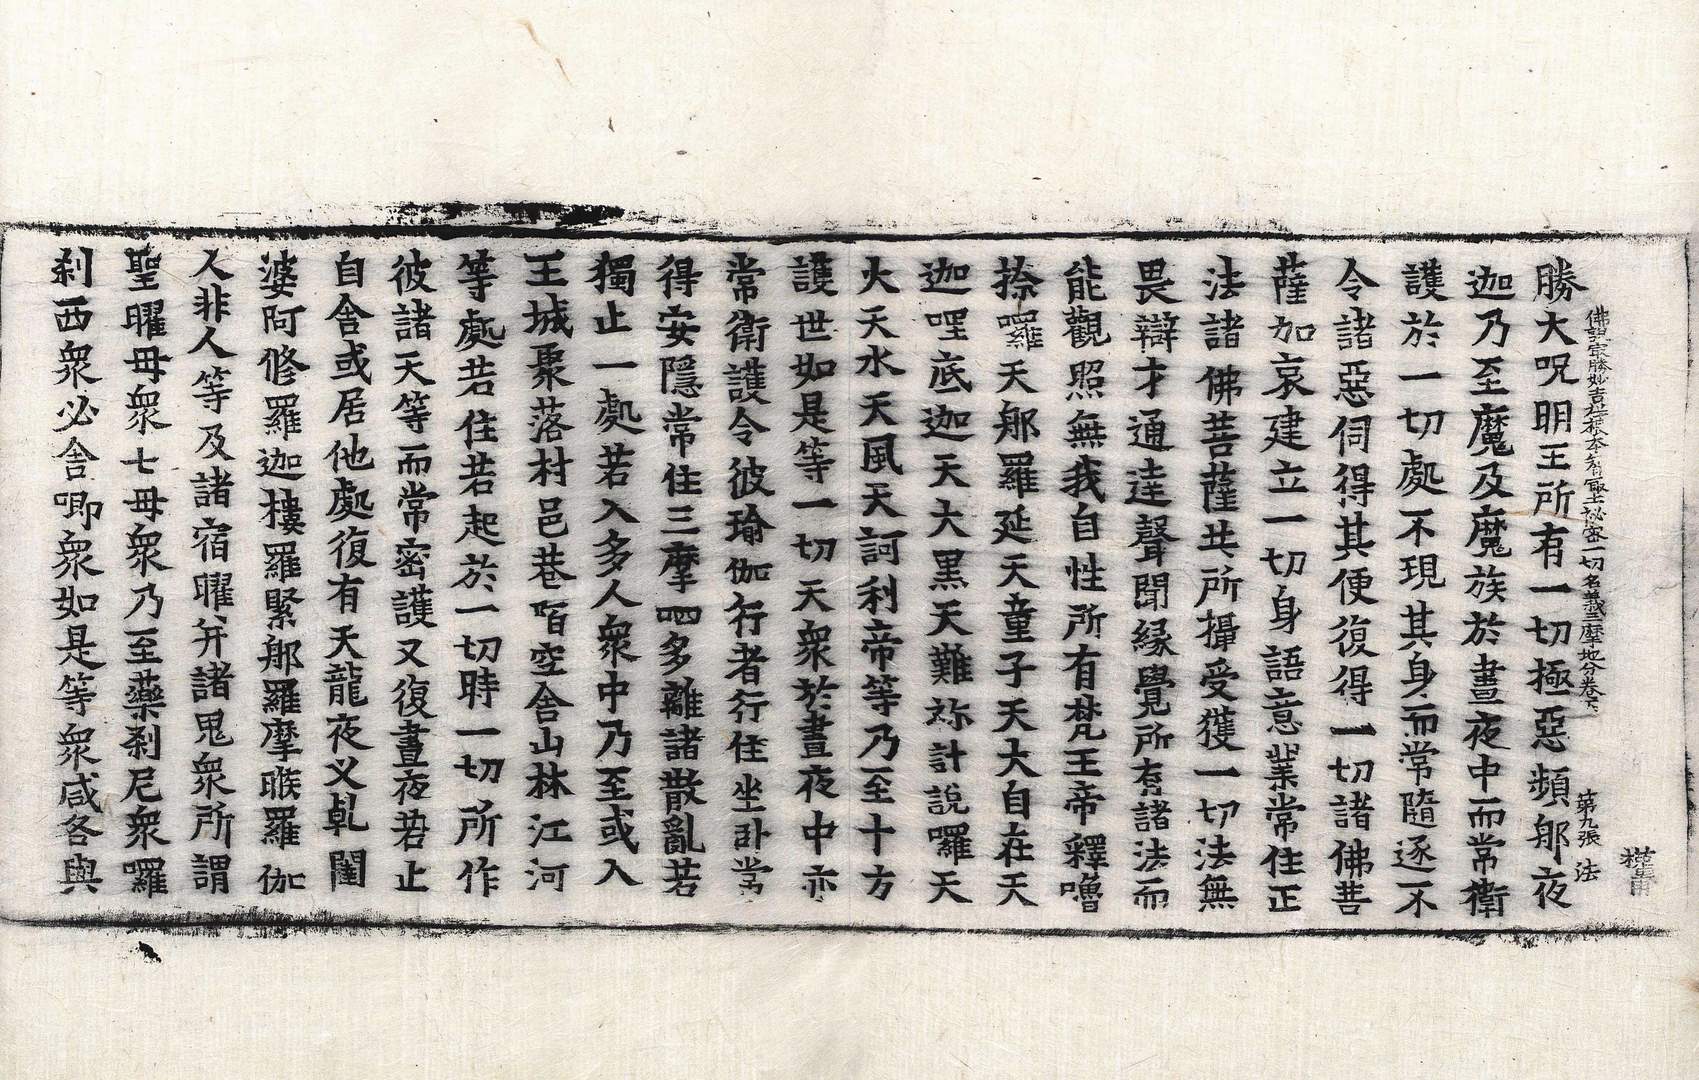 佛說最勝妙吉祥根本智最上祕密一切名義三摩地分卷下 第九張 法
勝大呪明王所有一切極惡頻郍夜
迦乃至魔及魔族於晝夜中而常衛
護於一切處不現其身而常隨逐不
令諸惡伺得其便復得一切諸佛菩
薩加哀建立一切身語意業常住正
法諸佛菩薩共所攝受獲一切法無
畏辯才通達聲聞緣覺所有諸法而
能觀照無我自性所有梵王帝釋嚕
捺囉天郍羅延天童子天大自在天
迦哩底迦天大黒天難祢計說囉天
火天水天風天訶利帝等乃至十方
護世如是等一切天衆於晝夜中亦
常衛護令彼瑜伽行者行住坐卧常
得安隱常住三摩呬多離諸散亂若
獨止一處若入多人衆中乃至或入
王城聚落村邑巷陌空舍山林江河
等處若住若起於一切時一切所作
彼諸天等而常密護又復晝夜若止
自舍或居他處復有天龍夜叉乹闥
婆阿修羅迦樓羅緊郍羅摩睺羅伽
人非人等及諸宿曜并諸鬼衆所謂
聖曜母衆七母衆乃至藥刹尼衆囉
刹西衆必舍唧衆如是等衆咸各與